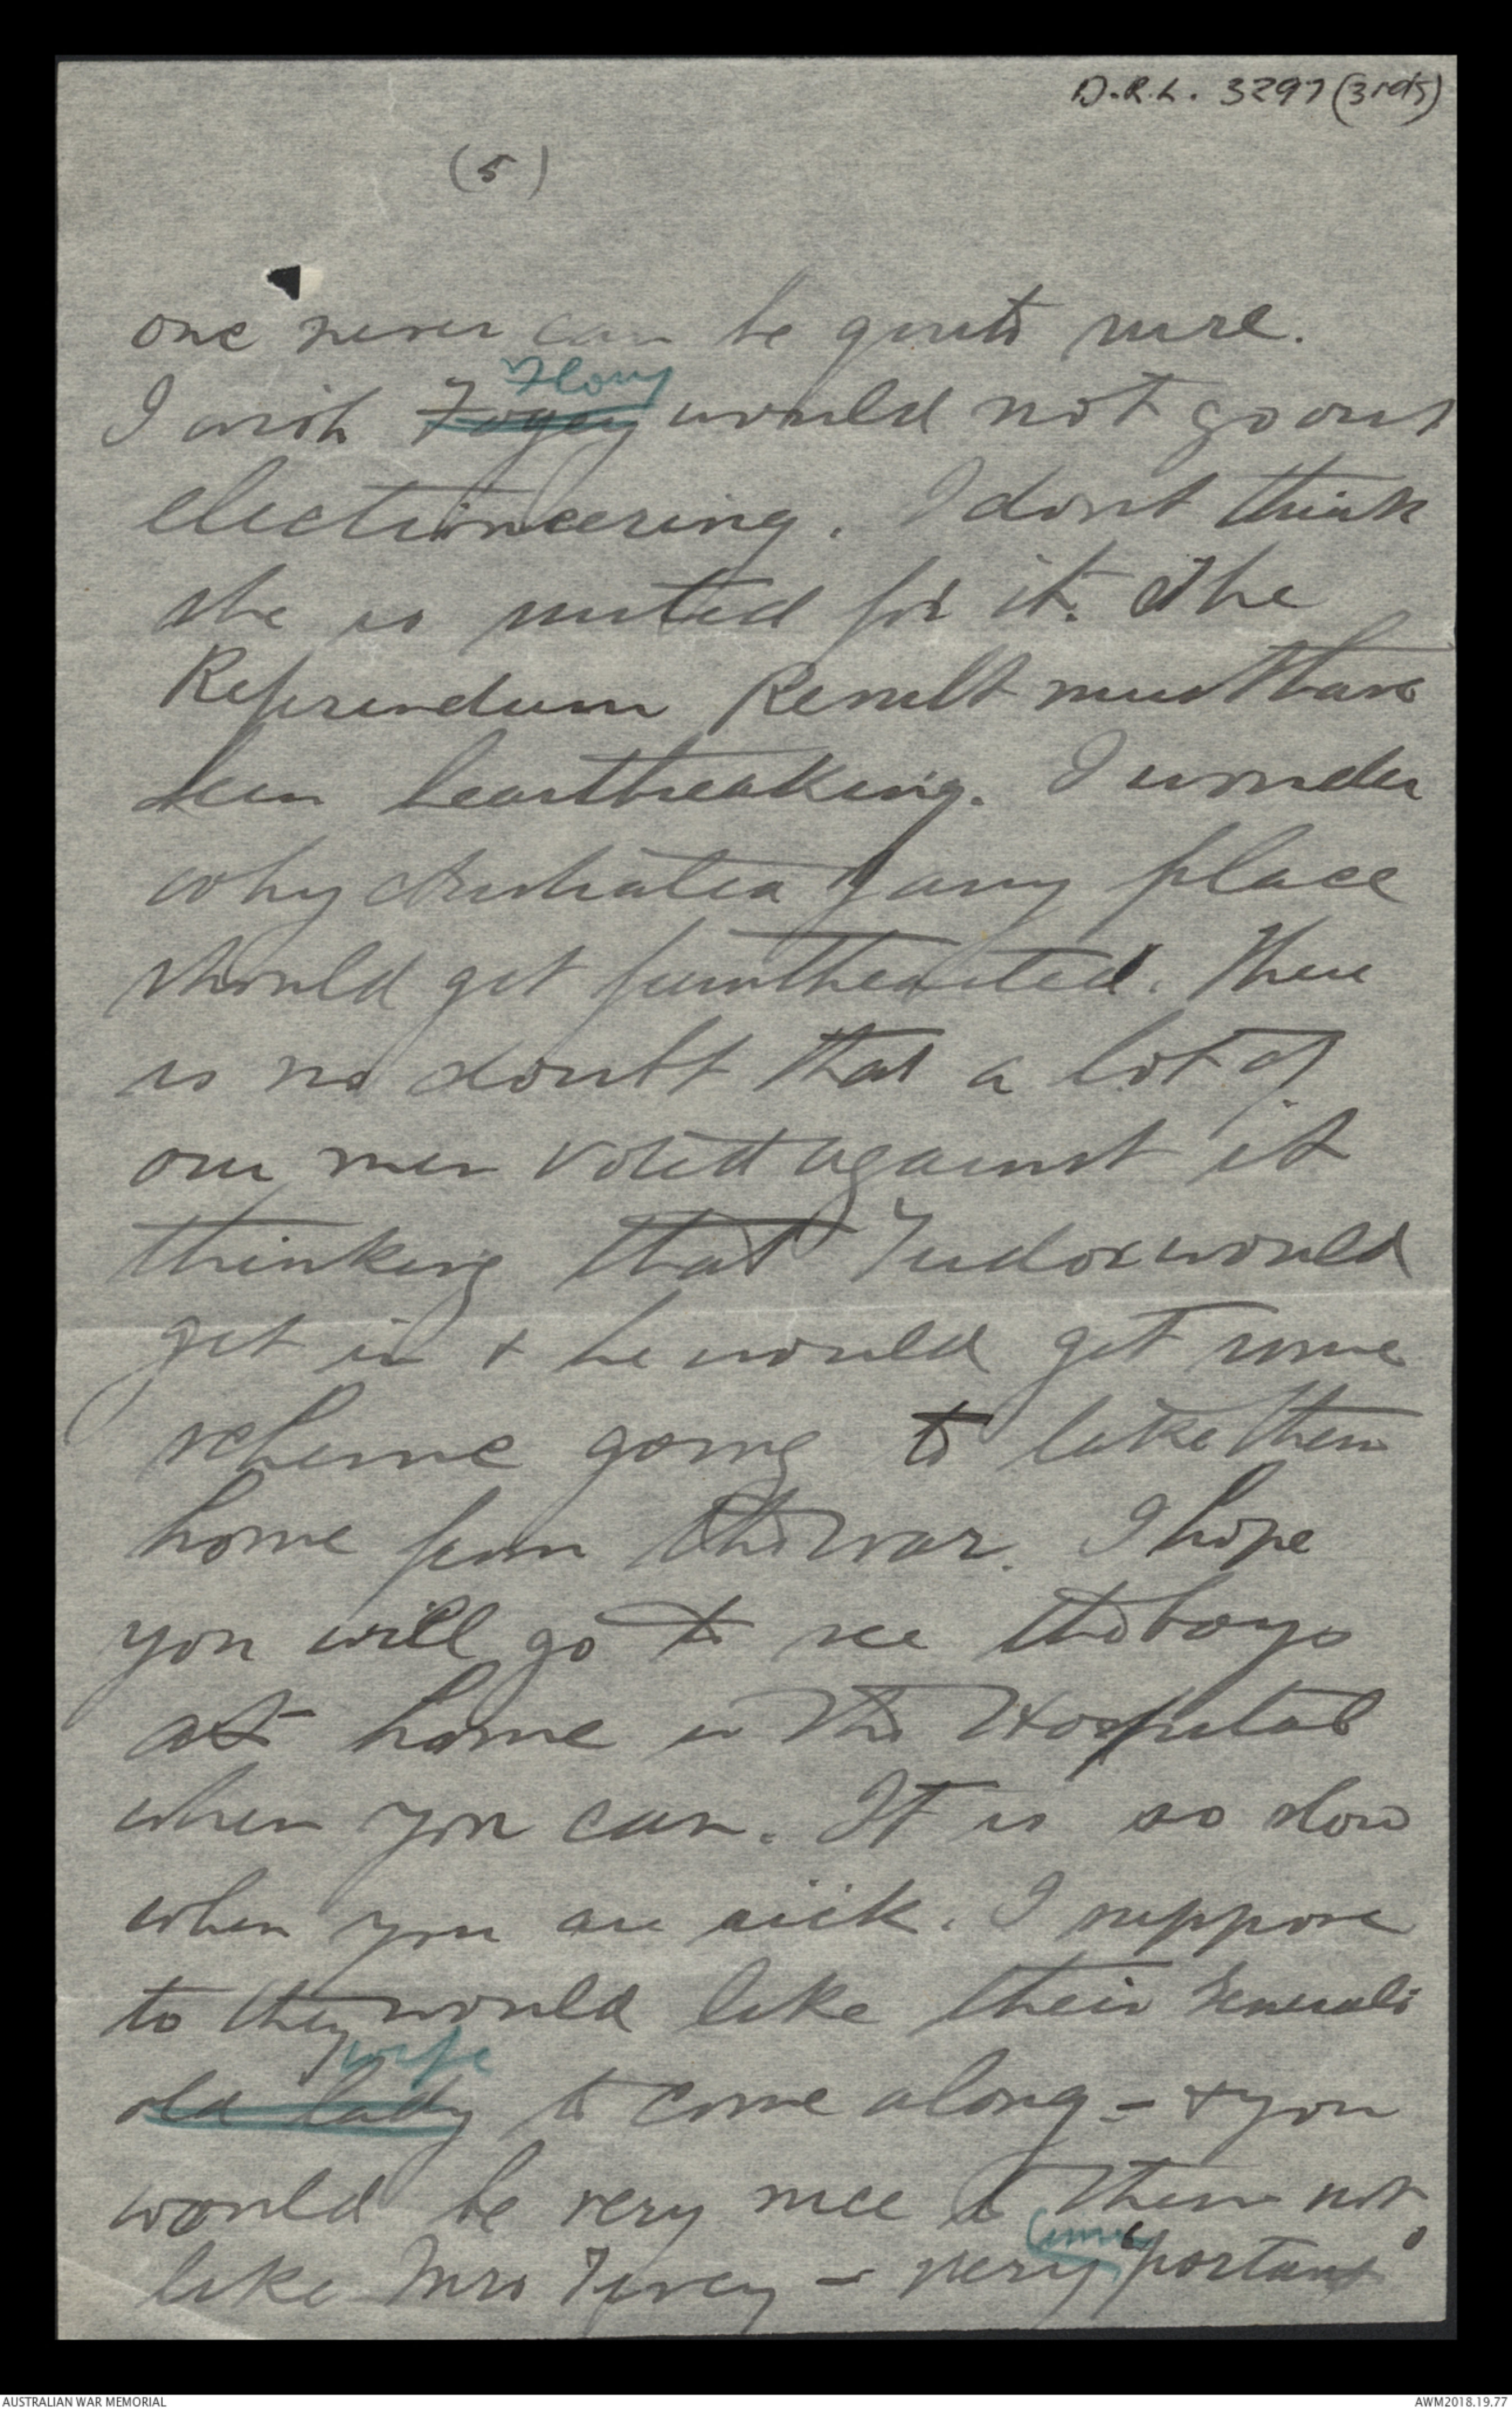 D.R.L. 3297 (3rd S)
(5)
one never can be quite sure.
Flory
I wish Fogey would not go out
electioneering. I don't think
she is suited for it. The
Referendum Result must have
been heartbreaking. I wonder
why Australia of any place
should get fainthearted. There
is no doubt that a lot of
our men voted against it
thinking that Tudor would
get in & he would get some
scheme going to take them
home from the war. I hope
you will go to see the boys
at home in the Hospital
when you can. It is so slow
when you are sick. I suppose
to they would like their Generals
wife
old lady to come along - & you
would be very nice to them not
like Mrs Tivey - very "portant"
AUSTRALIAN WAR MEMORIAL
AWM2018.19.77